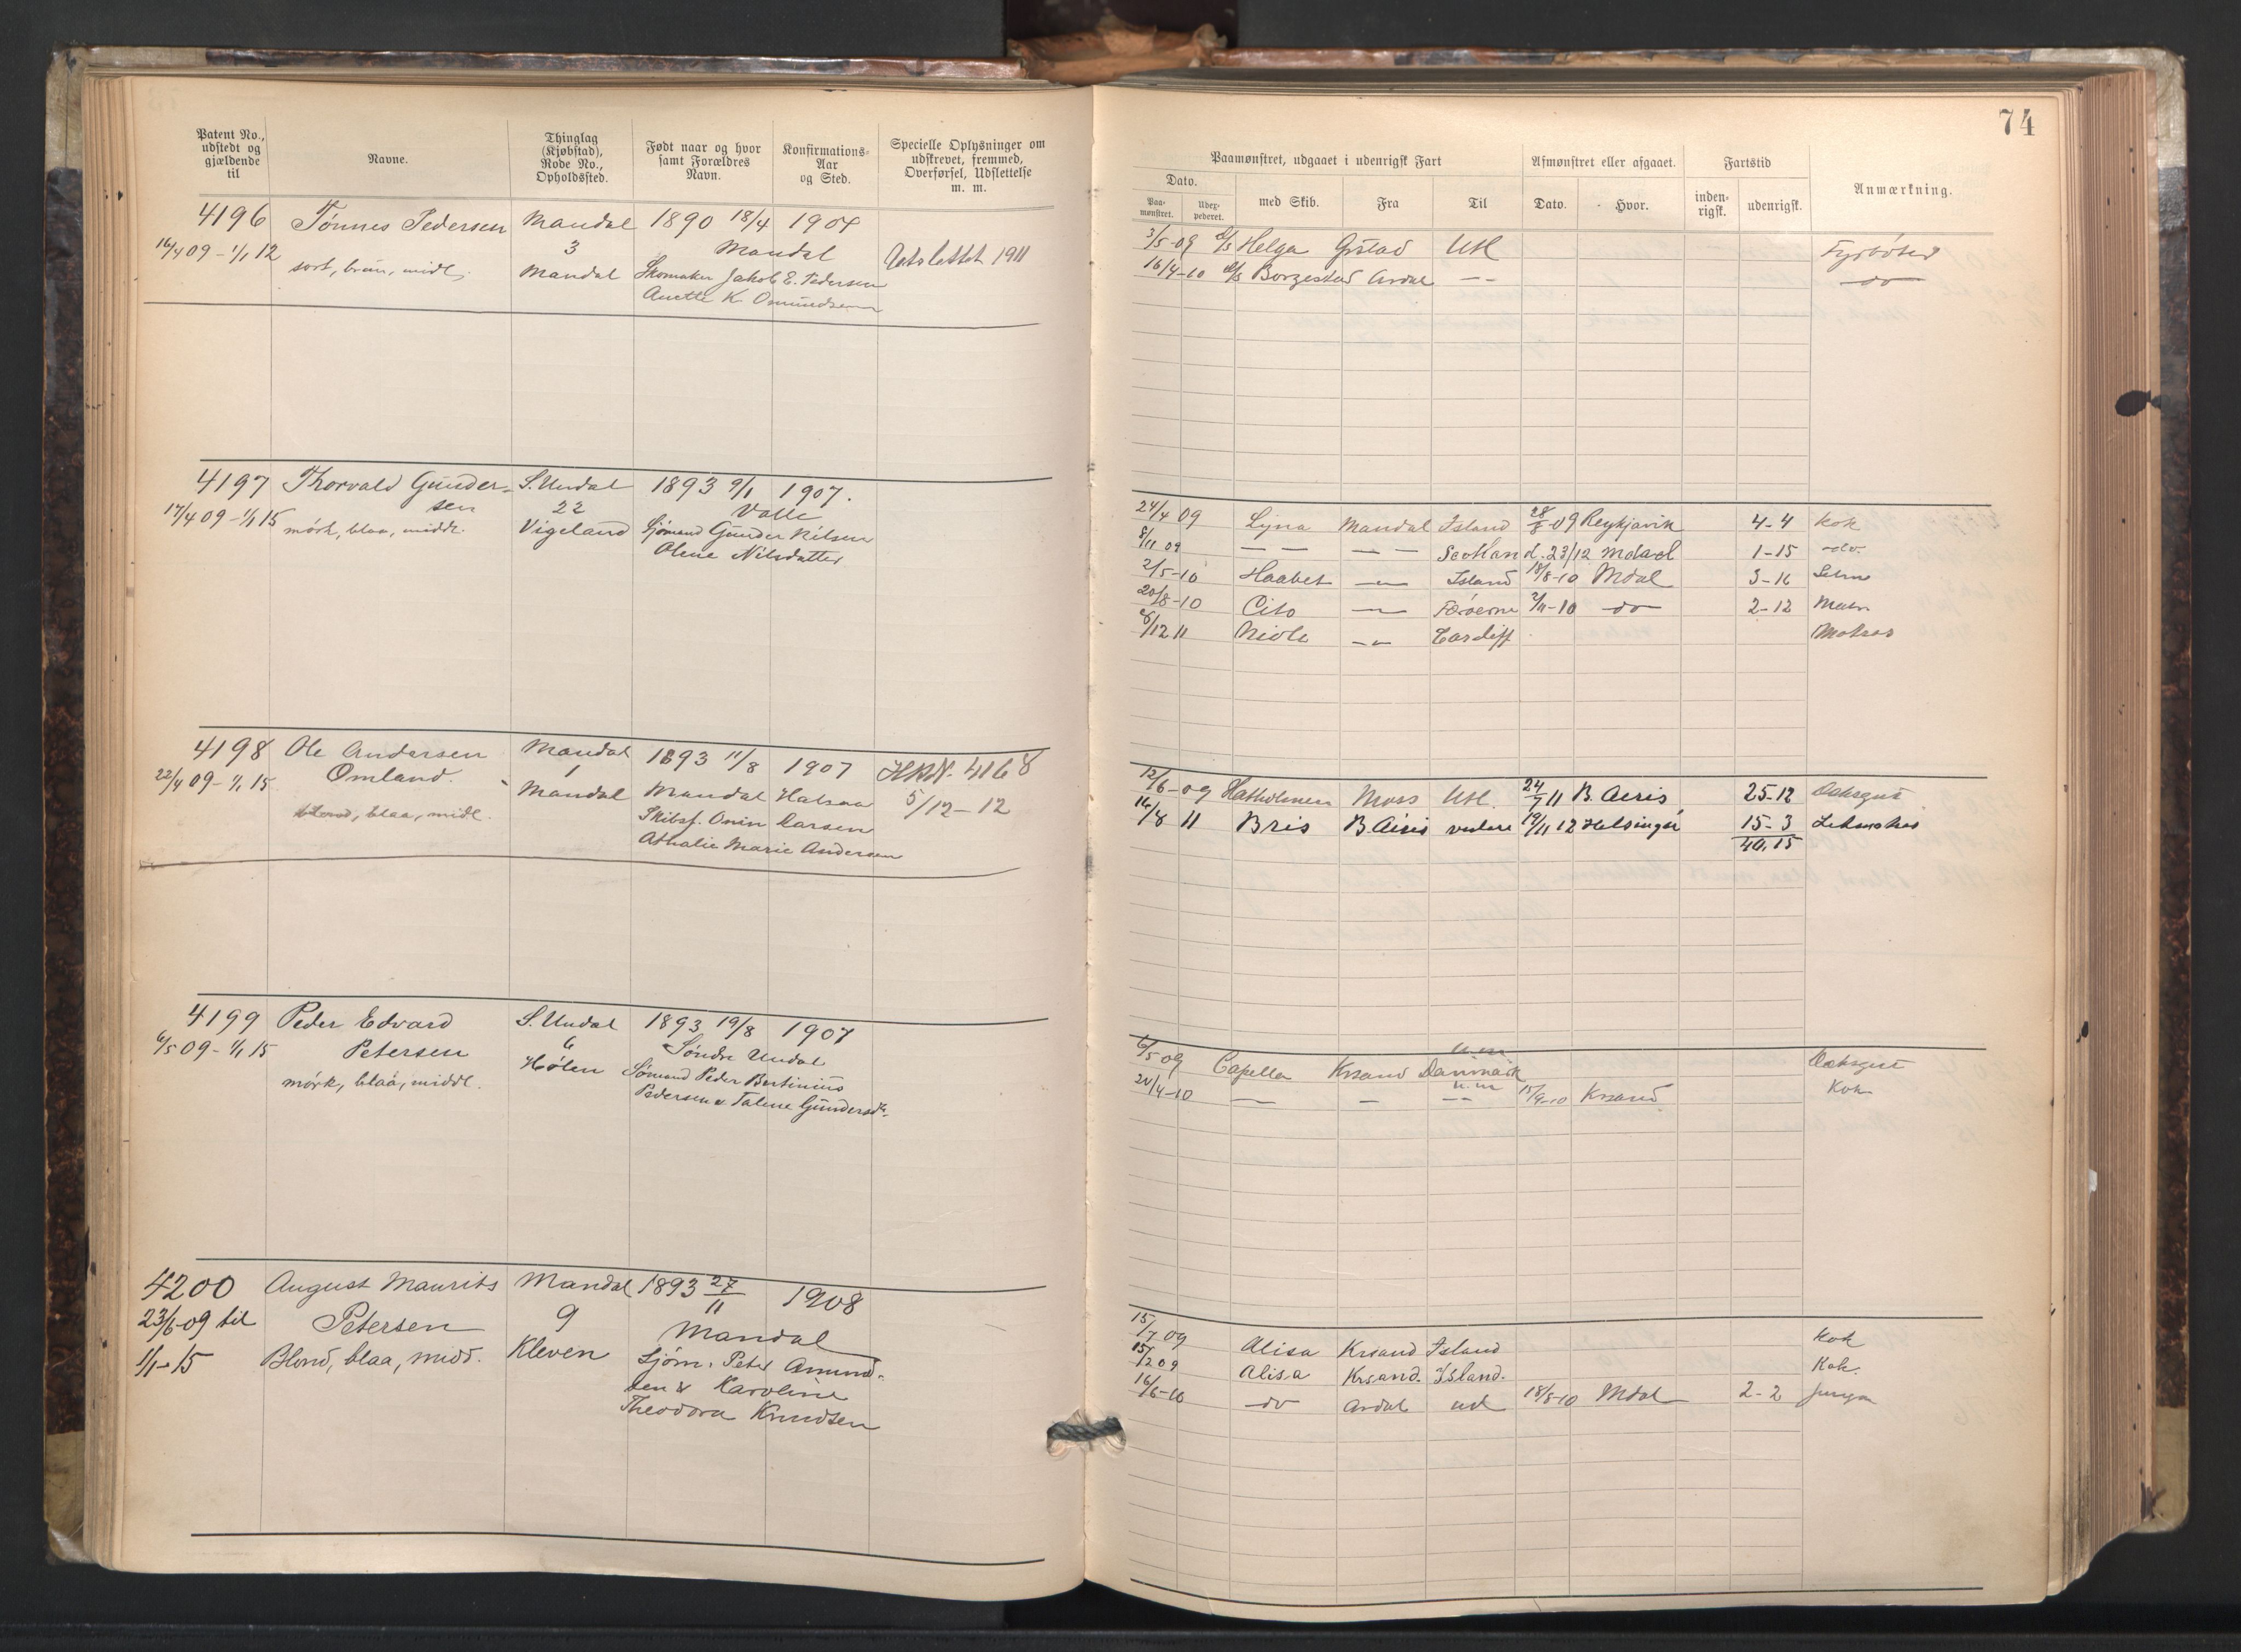 74
Patent No., udstedt og gjældende til
Navne.
Thinglag (Kjøbstad), Rode No., Opholdssted.
Født naar og hvor samt Forældres Navn.
Konfirmations-Aar og Sted.
Specielle Oplysninger om udskrevet, fremmed, Overførsel, Udslettelse m. m.
Paamønstret, udgaaet i udenrigsk Fart
Afmønstret eller afgaaet.
Fartstid
Anmærkning.
Dato.
med Skib.
Fra
Til
Dato.
Hvor.
inden-rigsk.
udenrigsk.
Paa-mønstret.
Udex-pederet.
4196 Tønnes Pedersen Mandal 1890 18/4 1904
16/4 09 - 1/1 12 3 Mandal Udslettet 1911
sort, brun, midl. Mandal Skomaker Jakob E. Pedersen
Anette K Omundsen
3/5-09 Helga Grstad Utl Fyrbøter
16/4-10 Borgestad Ardal — do
4197 Thorvald Gunder- S. Undal 1893 9/1 1907.
sen 22 Valle
17/4 09 - 1/1 15 mørk, blaa, middl. Vigeland Sjømand Gunder Nilsen
Olene Nilsdatter
24/4 09 Lyna Mandal Island 28/8-09 Reykjavik 4-4 Kok
8/11 09 — — — — Scotland. 23/12 Mdal 1-15 do.
2/5-10 Haabet — Island 18/8-10 Mdal 3-16
20/8-10 Cito — Færøerne 2/11-10 do 2-12 Matr
6/12 11 — Cardiff Matros
4198 Ole Andersen Mandal 1893 11/8 1907 H.R.N. 4168
22/4 09 - 1/1 15 Omland. 1 Mandal Halsaa 5/12-12
blond, blaa, midl. Mandal Skibsf. Onin Larsen
Athalie Marie Andersen
12/6-09 Hatholmen Moss Utl. 24/7 11 B. Aeris 25-12 Dæksgut
16/8 11 Bris B. Airis videre 19/11 12 Helsingør 15-3 Letmatros
40,15
4199 Peder Edvard S. Undal 1893 19/8 1907
6/5 09 - 1/1 15 Petersen 6 Søndre Undal
mørk, blaa, middl. Hølen Sømand Peder Bertinius
Pedersen & Talene Gundersdtr.
6/5 09 Capella Krsand Danmark Dæksgut
24/4-10 — — — 15/9-10 Krsand Kok
4200 August Maurits Mandal 1893 27/11 1908
23/6-09 til Petersen 9 Mandal
1/1-15 Blond, blaa, midd. Kleven Sjøm. Peter Amund-
sen & Karoline
Theodora Knudsen
15/7 09 Alisa Krsand Island Kok
15/12 09 Alisa Krsand. Island. Kok.
16/6-10 do Ardal ud 18/8-10 Mdal 2-2 Jungm